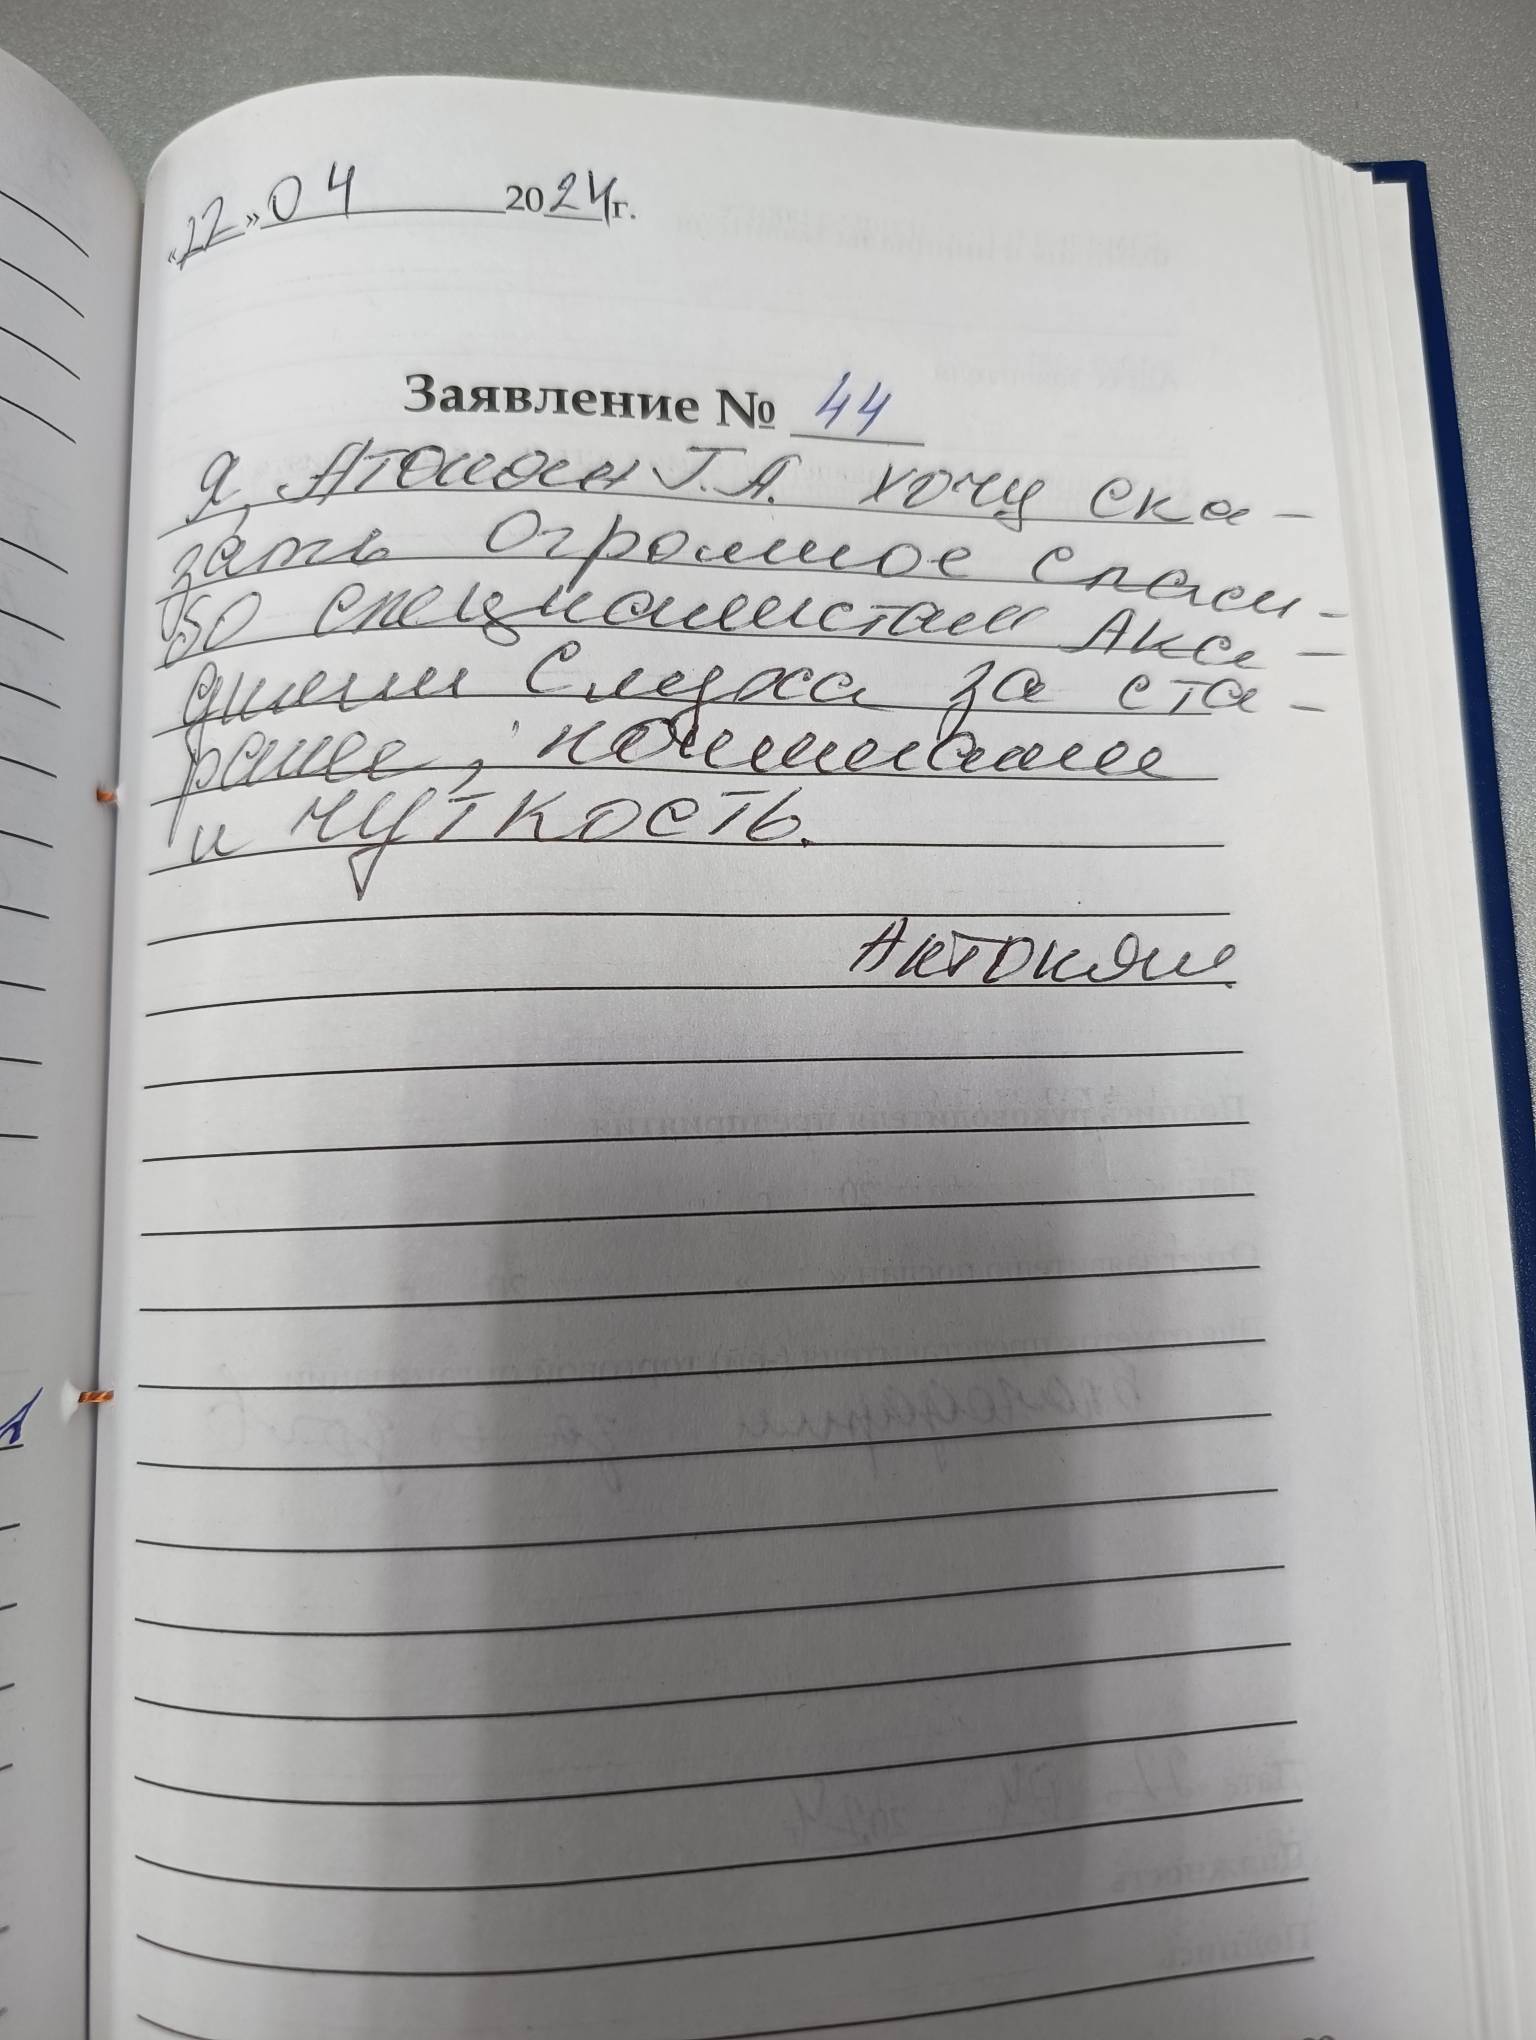 «22» 04 2024г.
Заявление № 44
Я, Атоноян Г.А. хочу ска-
зать огромное спаси-
бо специалистам Ака-
демии Слуха за ста-
рание, понимание
и чуткость.